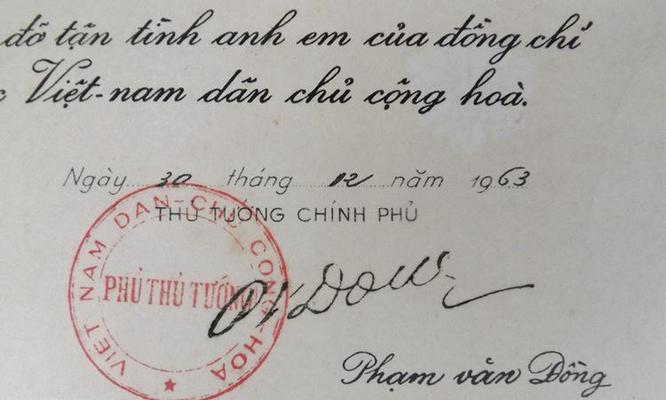 đỡ tận tình anh em của đồng chí
Việt-nam dân chủ cộng hoà.
Ngày 30 tháng 12 năm 1963
THỦ TƯỚNG CHÍNH PHỦ
VIỆT NAM DÂN-CHỦ CỘNG-HÒA
PHỦ THỦ TƯỚNG
Phạm văn Đồng